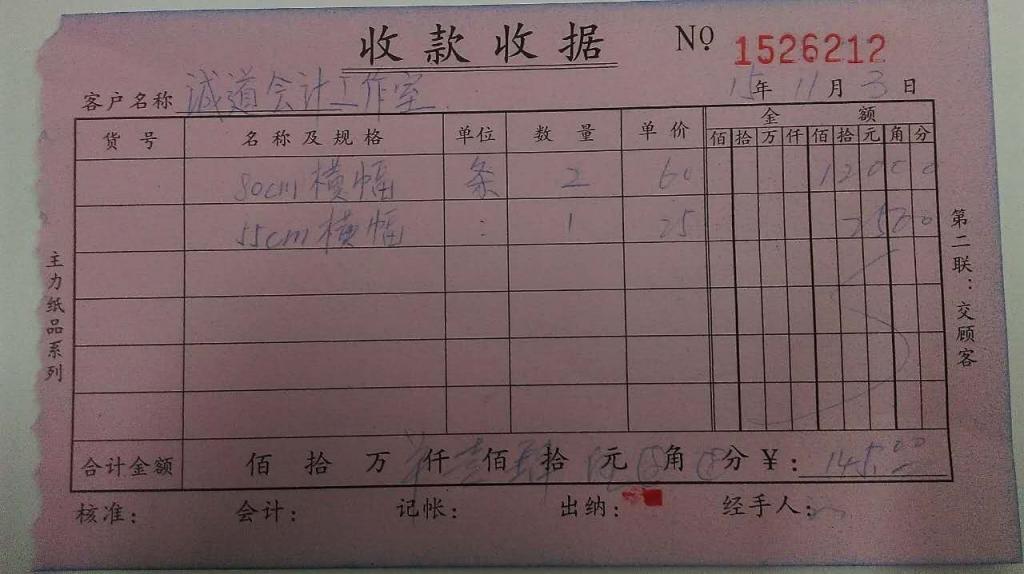 收款收据 Nº 1526212
客户名称 诚道会计工作室 15年 11月 3日
货号 名称及规格 单位 数量 单价 金额
佰 拾 万 仟 佰 拾 元 角 分
80cm横幅 条 2 60 12000
55cm横幅 : 1 25 2500
合计金额 佰 拾 万 仟 壹 佰 肆 拾 伍 元 角 分 ¥: 145.00
核准: 会计: 记帐: 出纳: 经手人:
主力纸品系列
第二联:交顾客